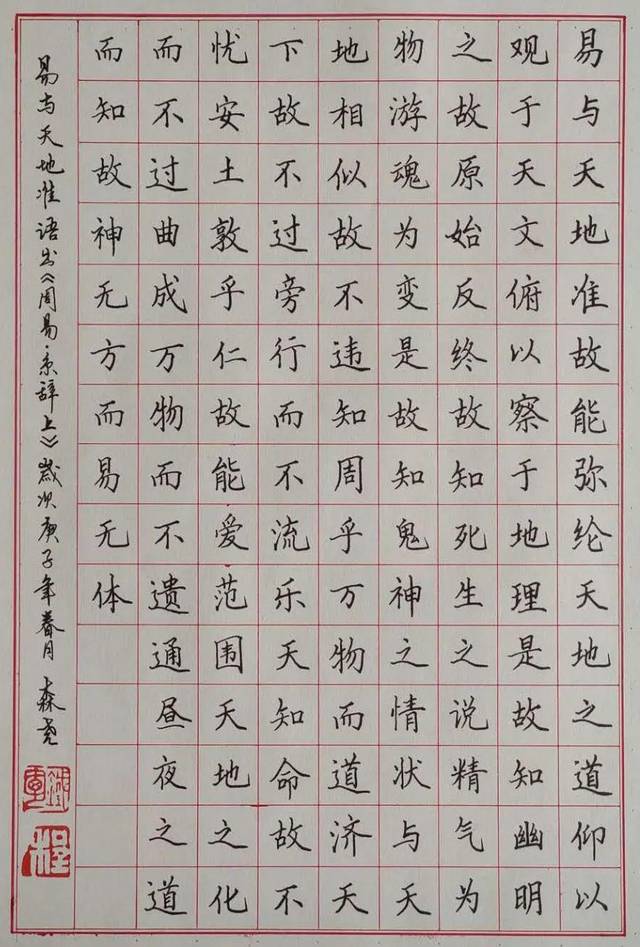 易与天地准故能弥纶天地之道仰以
观于天文俯以察于地理是故知幽明
之故原始反终故知死生之说精气为
物游魂为变是故知鬼神之情状与天
地相似故不违知周乎万物而道济天
下故不过旁行而不流乐天知命故不
忧安土敦乎仁故能爱范围天地之化
而不过曲成万物而不遗通昼夜之道
而知故神无方而易无体
易与天地准语出《周易·系辞上》歲次庚子年春月 森尧